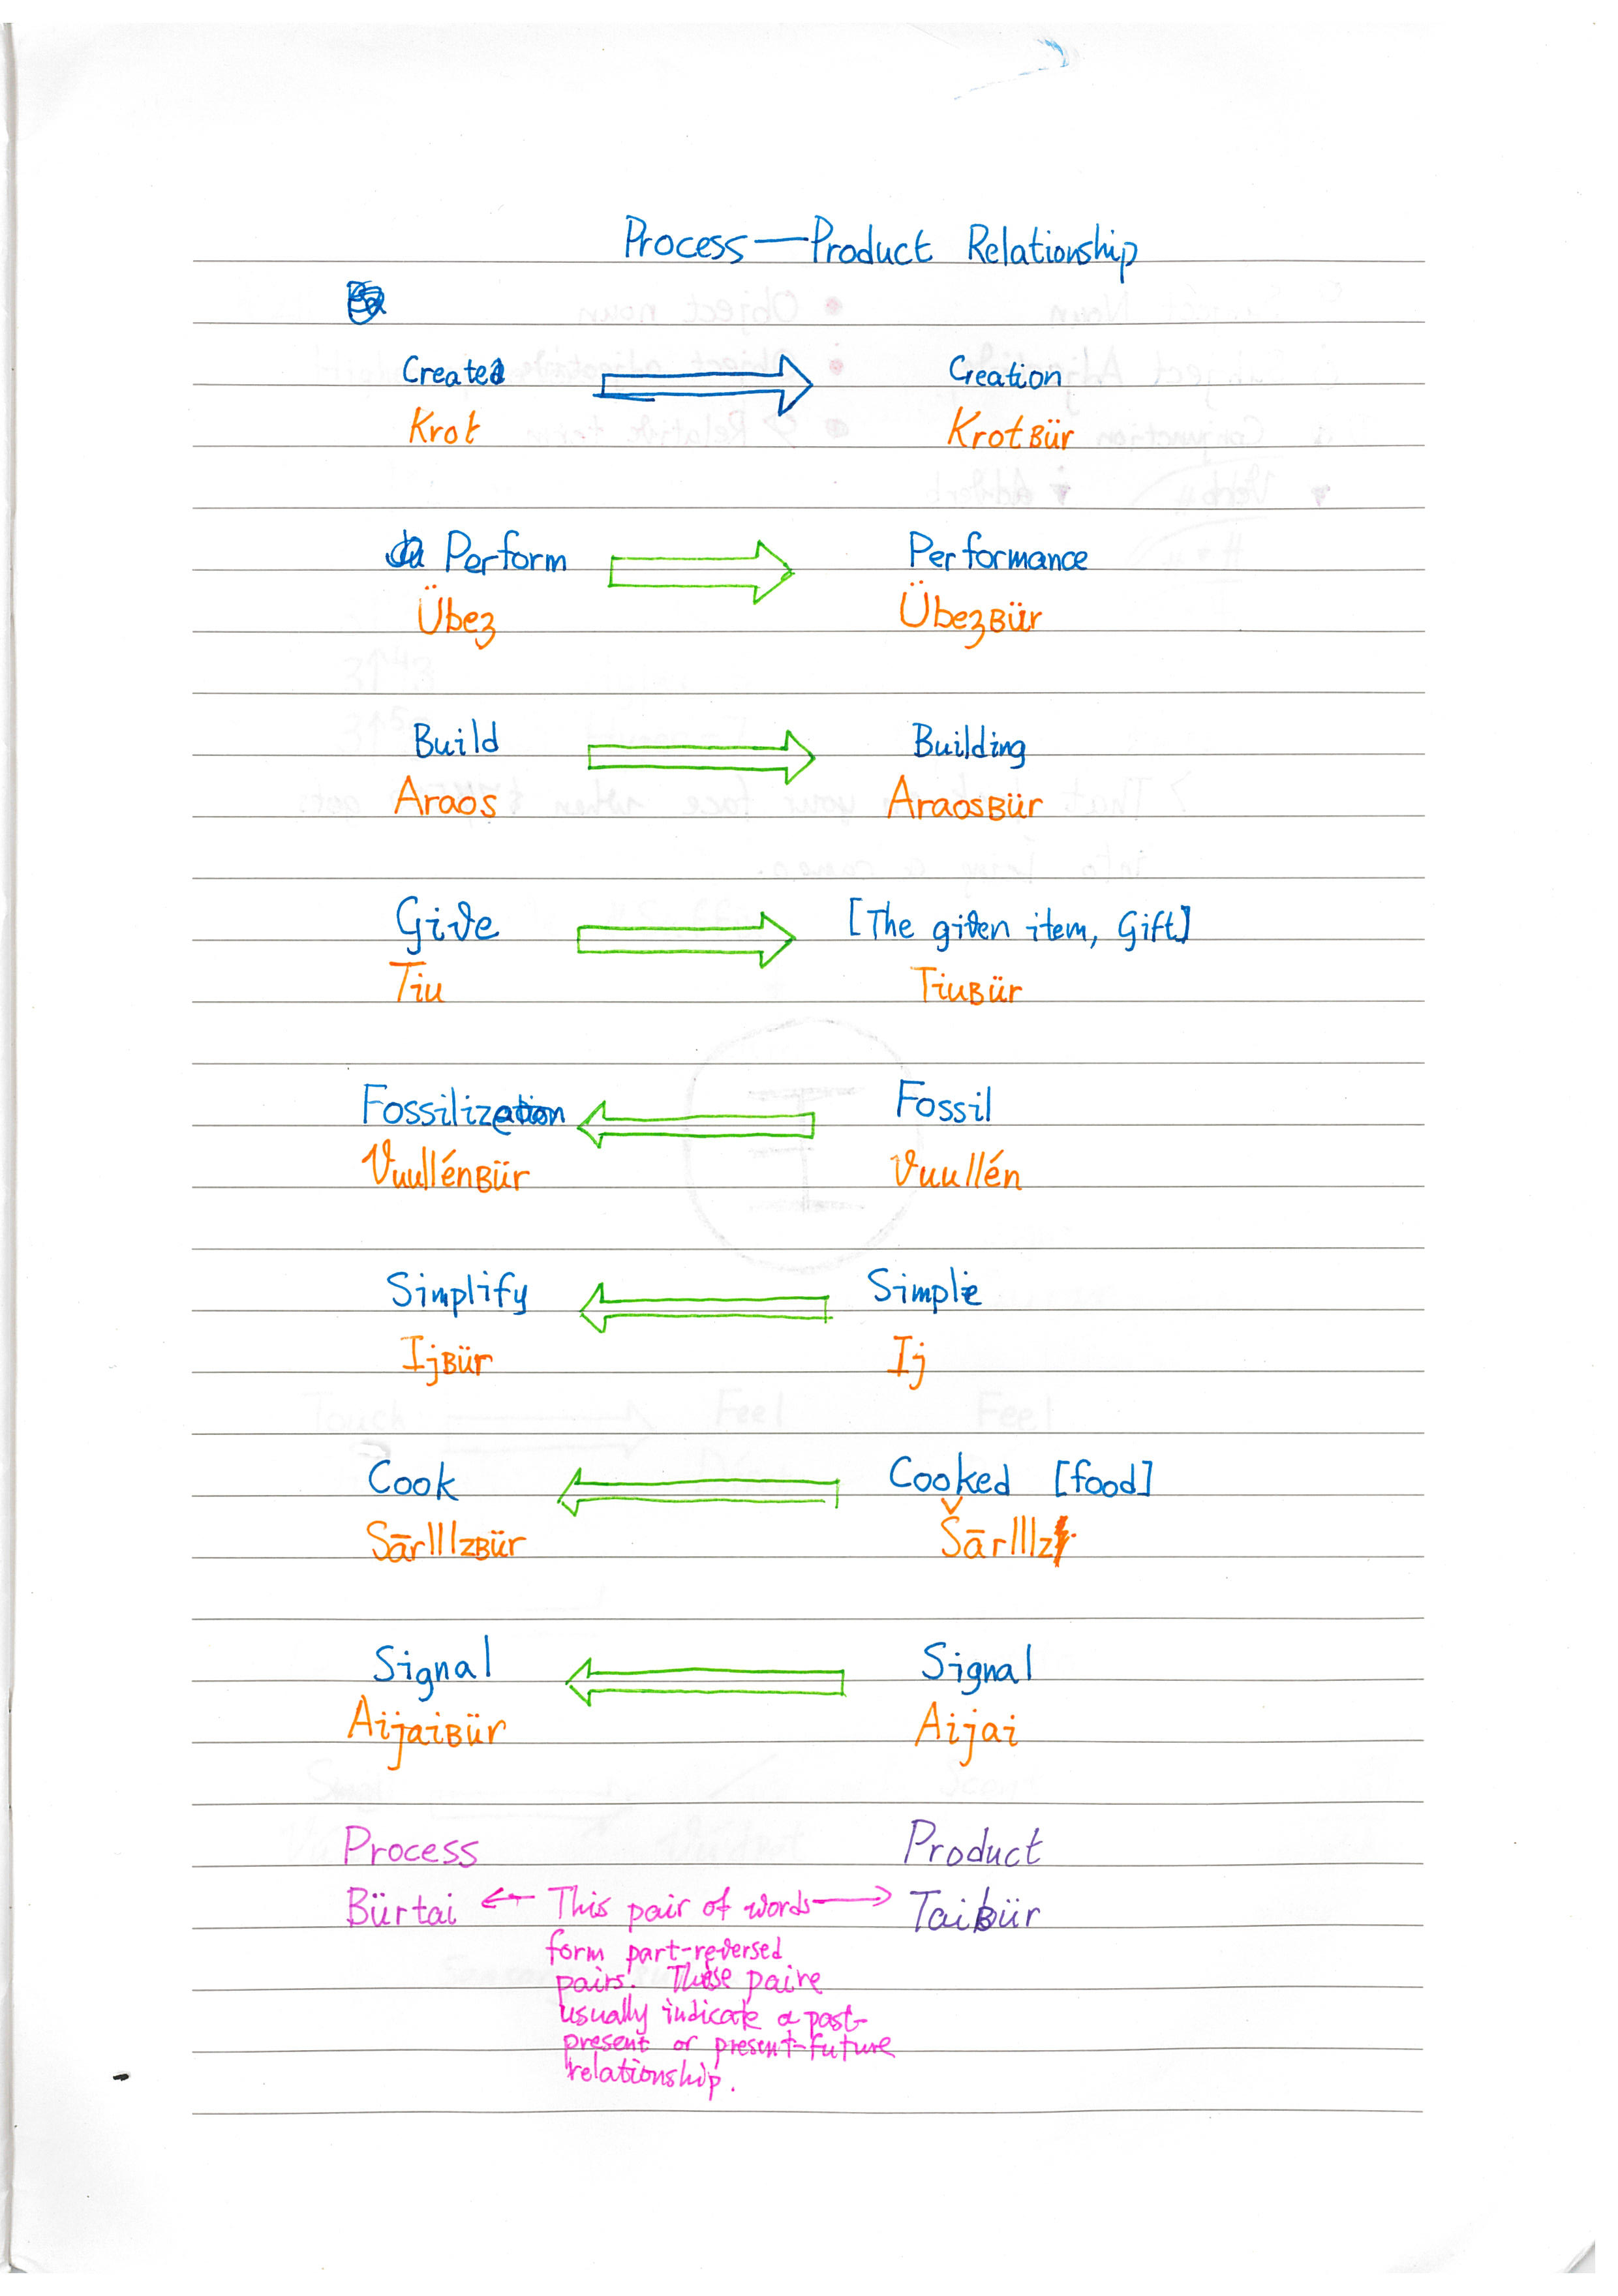 Process—Product Relationship
Create Creation
Krot Krotʙür
Perform Performance
Übez Übezʙür
Build Building
Araos Araosʙür
Give [The given item, Gift]
Tiu Tiuʙür
Fossilization Fossil
Vuullénʙür Vuullén
Simplify Simple
Ijʙür Ij
Cook Cooked [food]
Sārlllzʙür Šārlllz
Signal Signal
Aijaiʙür Aijai
Process Product
Bürtai ← This pair of words → Taibür
form part-reversed
pairs. These paire
usually indicate a past-
present or present-future
relationship.